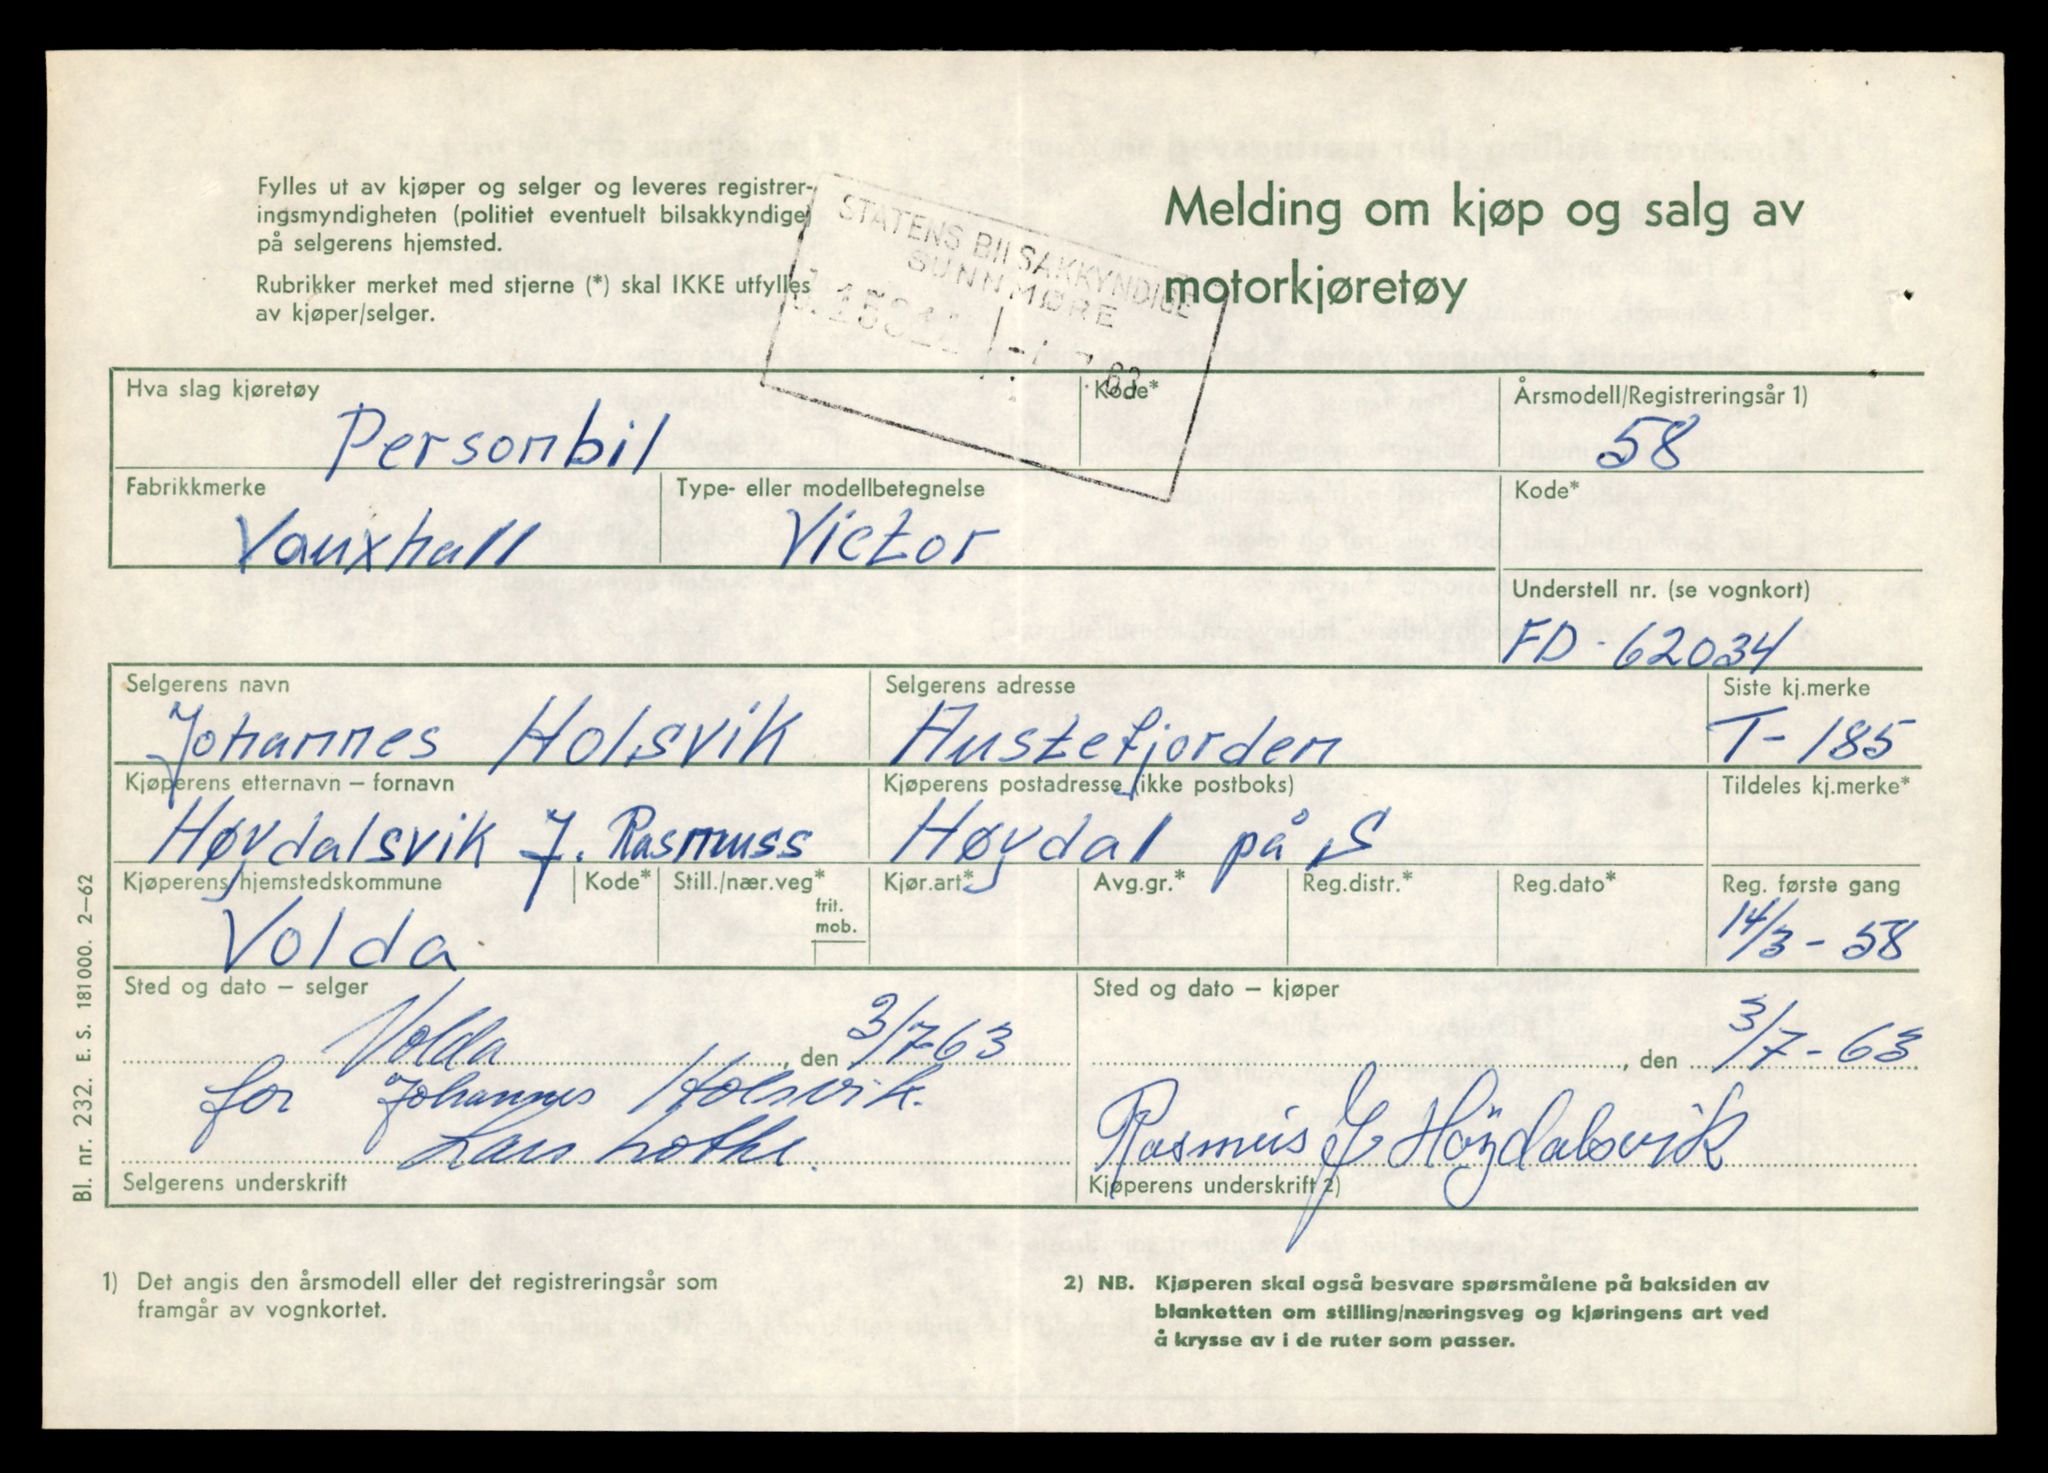 Fylles ut av kjøper og selger og leveres registrer-
ingsmyndigheten (politiet eventuelt bilsakkyndige)
på selgerens hjemsted.
Rubrikker merket med stjerne (*) skal IKKE utfylles
av kjøper/selger.
STATENS BILSAKKYNDIGE
SUNNMØRE
Melding om kjøp og salg av
motorkjøretøy
Hva slag kjøretøy
Personbil
Kode*
Årsmodell/Registreringsår 1)
58
Fabrikkmerke
Vauxhall
Type- eller modellbetegnelse
Victor
Kode*
Understell nr. (se vognkort)
FD-62034
Selgerens navn
Johannes Holsvik
Selgerens adresse
Austefjorden
Siste kj.merke
T-185
Kjøperens etternavn – fornavn
Høydalsvik J. Rasmuss
Kjøperens postadresse (ikke postboks)
Høydal på S
Tildeles kj.merke*
Kjøperens hjemstedskommune
Volda
Kode*
Still./nær.veg*
frit.
mob.
Kjør.art*
Avg.gr.*
Reg.distr.*
Reg.dato*
Reg. første gang
14/3-58
Sted og dato – selger
Volda, den 3/7-63
for Johannes Holsvik.
Lars
Selgerens underskrift
Sted og dato – kjøper
, den 3/7-63
Rasmus J Höydalsvik
Kjøperens underskrift 2)
Bl. nr. 232. E. S. 181 000. 2–62
1) Det angis den årsmodell eller det registreringsår som
framgår av vognkortet.
2) NB. Kjøperen skal også besvare spørsmålene på baksiden av
blanketten om stilling/næringsveg og kjøringens art ved
å krysse av i de ruter som passer.